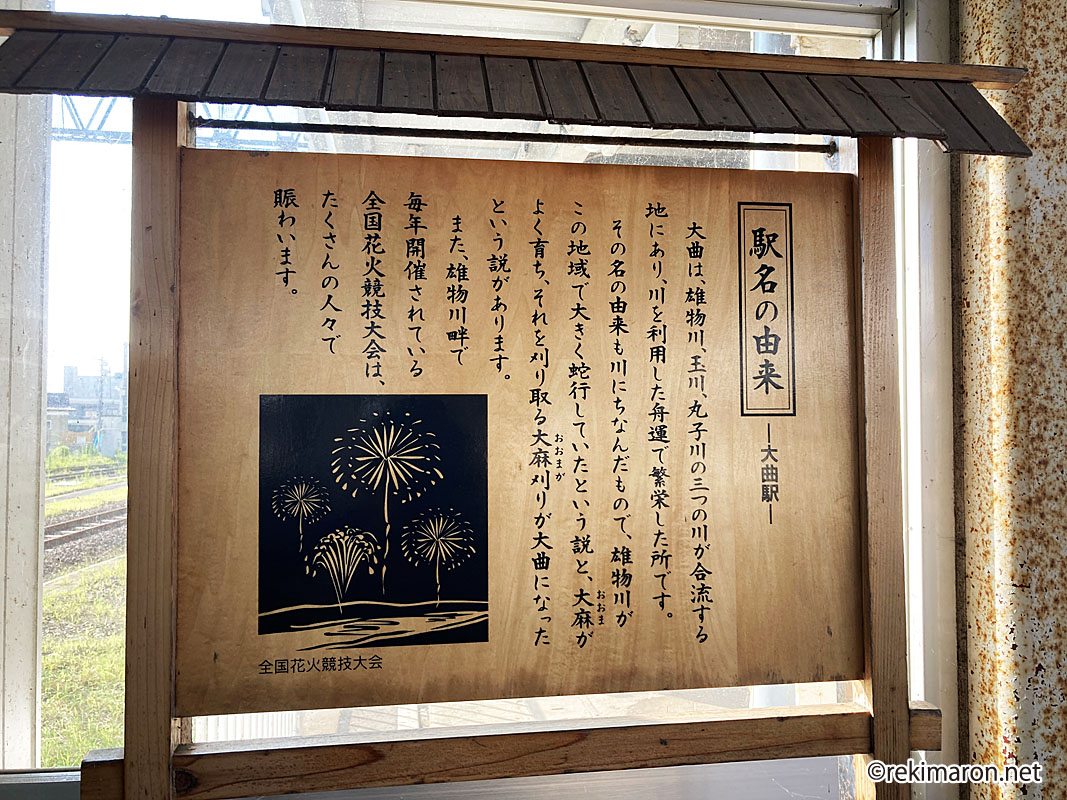 駅名の由来
―大曲駅―
大曲は、雄物川、玉川、丸子川の三つの川が合流する
地にあり、川を利用した舟運で繁栄した所です。
その名の由来も川にちなんだもので、雄物川が
この地域で大きく蛇行していたという説と、大麻が
おおま
よく育ち、それを刈り取る大麻刈りが大曲になった
おおまが
という説があります。
また、雄物川畔で
毎年開催されている
全国花火競技大会は、
たくさんの人々で
賑わいます。
全国花火競技大会
©rekimaron.net